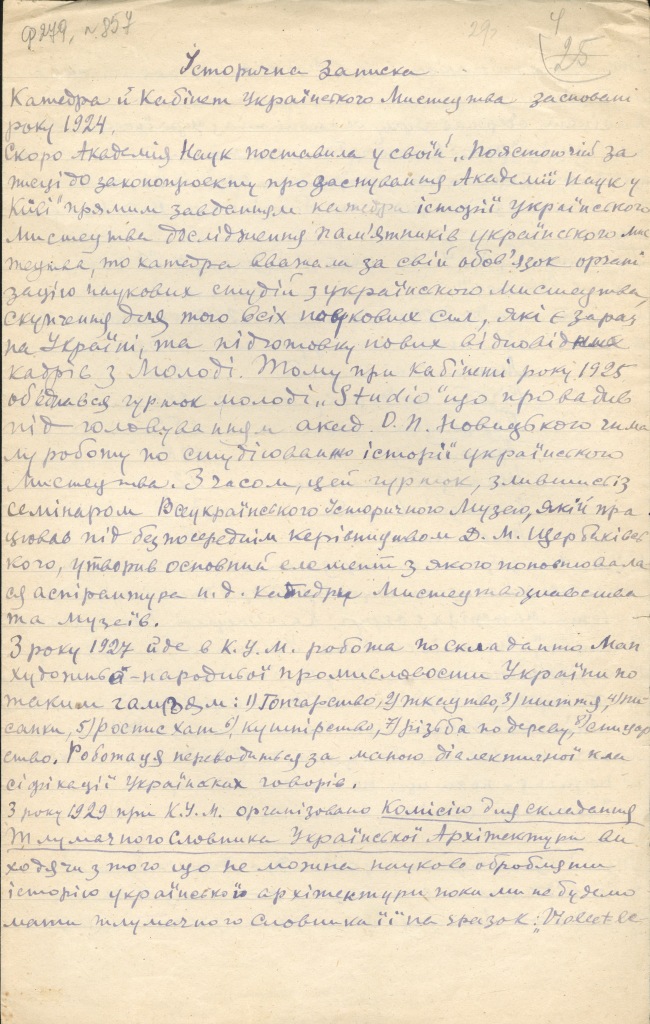 ф 279, №857
29
4
25
Історична Записка
Катедра й Кабінет Українського Мистецтва засновані
року 1924.
Скоро Академія Наук поставила у своїй „Пояснюючій за
писці до законопроекту про заснування Академії Наук у
Київі" прямим завданням катедри історії українського
мистецтва дослідження пам'ятників українського мис
тецтва, то катедра вважала за свій обов'язок органі
зацію наукових студій з українського мистецтва,
скупчення для того всіх наукових сил, які є зараз
на Україні, та підготовку нових відповідних
кадрів з молоді. Тому при кабінеті року 1925
об'єднався гурток молоді „Studio" що провадив
під головуванням акад. О. П. Новицького чима
лу роботу по студіюванню історії українського
мистецтва. З часом, цей гурток, злившись із
семінаром Всеукраїнського Історичного Музею, який пра
цював під безпосереднім керівництвом Д. М. Щербаківсь
кого, утворив основний елемент з якого поповнювала
ся аспірантура н.д. катедри Мистецтвознавства
та музеїв.
З року 1927 йде в К.У.М. робота по складанню Мап
художньої-народньої промисловости України по
таким галузям: 1) Гончарство, 2) ткацтво, 3) шиття, 4) пи
санки, 5) розпис хат 6) кушнірство, 7) різьба по дереву, 8) слюсар
ство. Робота ця переводиться за мапою діалектичної кла
сіфікації Українських говорів.
З року 1929 при К.У.М. організовано Комісію для складання
Тлумачного Словника Української Архітектури ви
ходячи з того що не можна науково обробляти
історію української архітектури поки ми не будемо
мати тлумачного словника її на зразок: „Viollet le